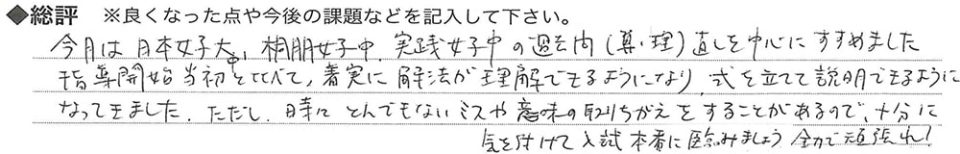 ◆総評 ※良くなった点や今後の課題などを記入して下さい。
今月は日本女子大中、桐朋女子中、実践女子中の過去問（算・理）直しを中心にすすめました
指導開始当初と比べて、着実に解法が理解できるようになり、式を立てて説明できるように
なってきました。ただし、時々とんでもないミスや意味の取りちがえをすることがあるので、十分に
気を付けて入試本番に臨みましょう 全力で頑張れ！